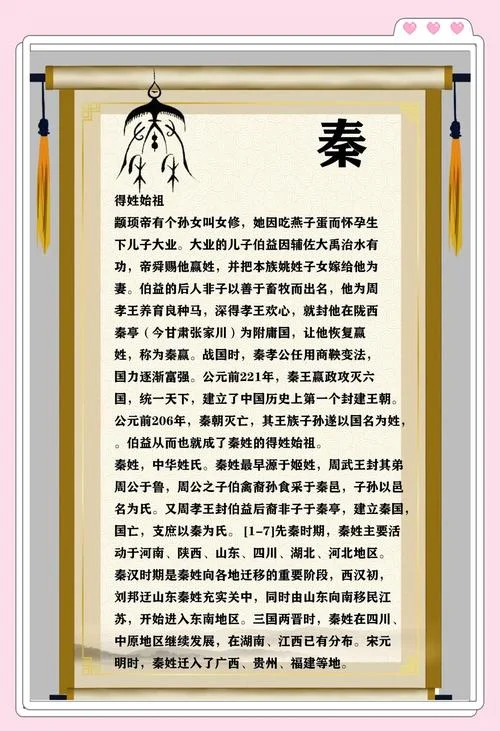 秦
得姓始祖
颛顼帝有个孙女叫女修，她因吃燕子蛋而怀孕生
下儿子大业。大业的儿子伯益因辅佐大禹治水有
功，帝舜赐他嬴姓，并把本族姚姓子女嫁给他为
妻。伯益的后人非子以善于畜牧而出名，他为周
孝王养育良种马，深得孝王欢心，就封他在陇西
秦亭（今甘肃张家川）为附庸国，让他恢复嬴
姓，称为秦嬴。战国时，秦孝公任用商鞅变法，
国力逐渐富强。公元前221年，秦王嬴政攻灭六
国，统一天下，建立了中国历史上第一个封建王朝。
公元前206年，秦朝灭亡，其王族子孙遂以国名为姓，
。伯益从而也就成了秦姓的得姓始祖。
秦姓，中华姓氏。秦姓最早源于姬姓，周武王封其弟
周公于鲁，周公之子伯禽裔孙食采于秦邑，子孙以邑
名为氏。又周孝王封伯益后裔非子于秦亭，建立秦国，
国亡，支庶以秦为氏。[1-7]先秦时期，秦姓主要活
动于河南、陕西、山东、四川、湖北、河北地区。
秦汉时期是秦姓向各地迁移的重要阶段，西汉初，
刘邦迁山东秦姓充实关中，同时由山东向南移民江
苏，开始进入东南地区。三国两晋时，秦姓在四川、
中原地区继续发展，在湖南、江西已有分布。宋元
明时，秦姓迁入了广西、贵州、福建等地。